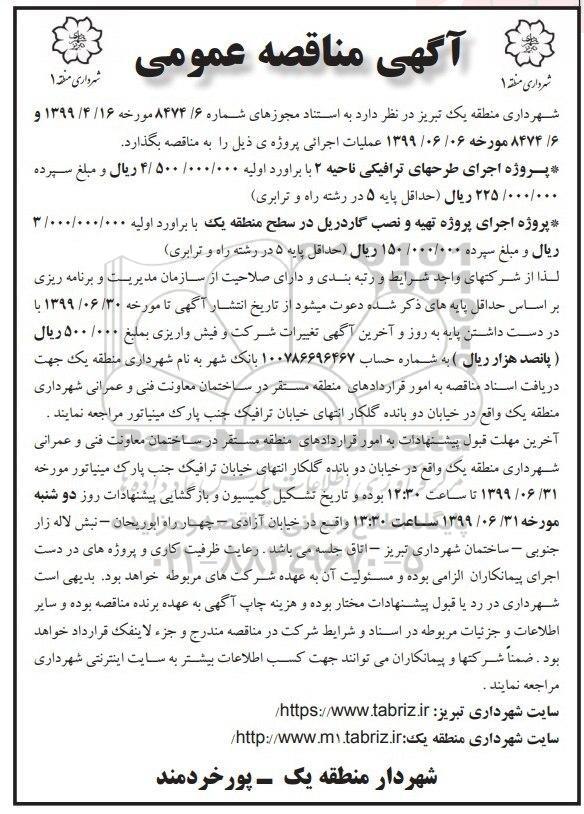 آگهی مناقصه عمومی
شهرداری منطقه ۱
شهرداری منطقه ۱
شهرداری منطقه یک تبریز در نظر دارد به استناد مجوزهای شماره ۶/ ۸۴۷۴ مورخه ۱۶/ ۴/ ۱۳۹۹ و
۶/ ۸۴۷۴ مورخه ۰۶/ ۰۶/ ۱۳۹۹ عملیات اجرائی پروژه ی ذیل را به مناقصه بگذارد.
*پروژه اجرای طرحهای ترافیکی ناحیه ۲ با براورد اولیه ۰۰۰/۰۰۰/ ۵۰۰ /۴ ریال و مبلغ سپرده
۰۰۰/۰۰۰/ ۲۲۵ ریال (حداقل پایه ۵ در رشته راه و ترابری)
*پروژه اجرای پروژه تهیه و نصب گاردریل در سطح منطقه یک با براورد اولیه ۰۰۰/۰۰۰/۰۰۰/ ۳
ریال و مبلغ سپرده ۰۰۰/۰۰۰/ ۱۵۰ ریال (حداقل پایه ۵ در رشته راه و ترابری)
لذا از شرکتهای واجد شرایط و رتبه بندی و دارای صلاحیت از سازمان مدیریت و برنامه ریزی
بر اساس حداقل پایه های ذکر شده دعوت میشود از تاریخ انتشار آگهی تا مورخه ۳۰/ ۰۶/ ۱۳۹۹ با
در دست داشتن پایه به روز و آخرین آگهی تغییرات شرکت و فیش واریزی بمبلغ ۰۰۰/ ۵۰۰ ریال
( پانصد هزار ریال ) به شماره حساب ۱۰۰۷۸۶۶۹۶۴۶۷ بانک شهر به نام شهرداری منطقه یک جهت
دریافت اسناد مناقصه به امور قراردادهای منطقه مستقر در ساختمان معاونت فنی و عمرانی شهرداری
منطقه یک واقع در خیابان دو بانده گلکار انتهای خیابان ترافیک جنب پارک مینیاتور مراجعه نمایند .
آخرین مهلت قبول پیشنهادات به امور قراردادهای منطقه مستقر در ساختمان معاونت فنی و عمرانی
شهرداری منطقه یک واقع در خیابان دو بانده گلکار انتهای خیابان ترافیک جنب پارک مینیاتور مورخه
۳۱/ ۰۶/ ۱۳۹۹ تا ساعت ۱۲:۳۰ بوده و تاریخ تشکیل کمیسیون و بازگشایی پیشنهادات روز دو شنبه
مورخه ۳۱/ ۰۶/ ۱۳۹۹ ساعت ۱۳:۳۰ واقع در خیابان آزادی – چهارراه ابوریحان – نبش لاله زار
جنوبی – ساختمان شهرداری تبریز – اتاق جلسه می باشد . رعایت ظرفیت کاری و پروژه های در دست
اجرای پیمانکاران الزامی بوده و مسئولیت آن به عهده شرکت های مربوطه خواهد بود. بدیهی است
شهرداری در رد یا قبول پیشنهادات مختار بوده و هزینه چاپ آگهی به عهده برنده مناقصه بوده و سایر
اطلاعات و جزئیات مربوطه در اسناد و شرایط شرکت در مناقصه مندرج و جزء لاینفک قرارداد خواهد
بود . ضمناً شرکتها و پیمانکاران می توانند جهت کسب اطلاعات بیشتر به سایت اینترنتی شهرداری
مراجعه نمایند .
سایت شهرداری تبریز: https://www.tabriz.ir/
سایت شهرداری منطقه یک: http://www.m1.tabriz.ir/
شهردار منطقه یک – پورخردمند
ParsNamadData
۰۲۱-۸۸۳۴۹۶۷۰-۵